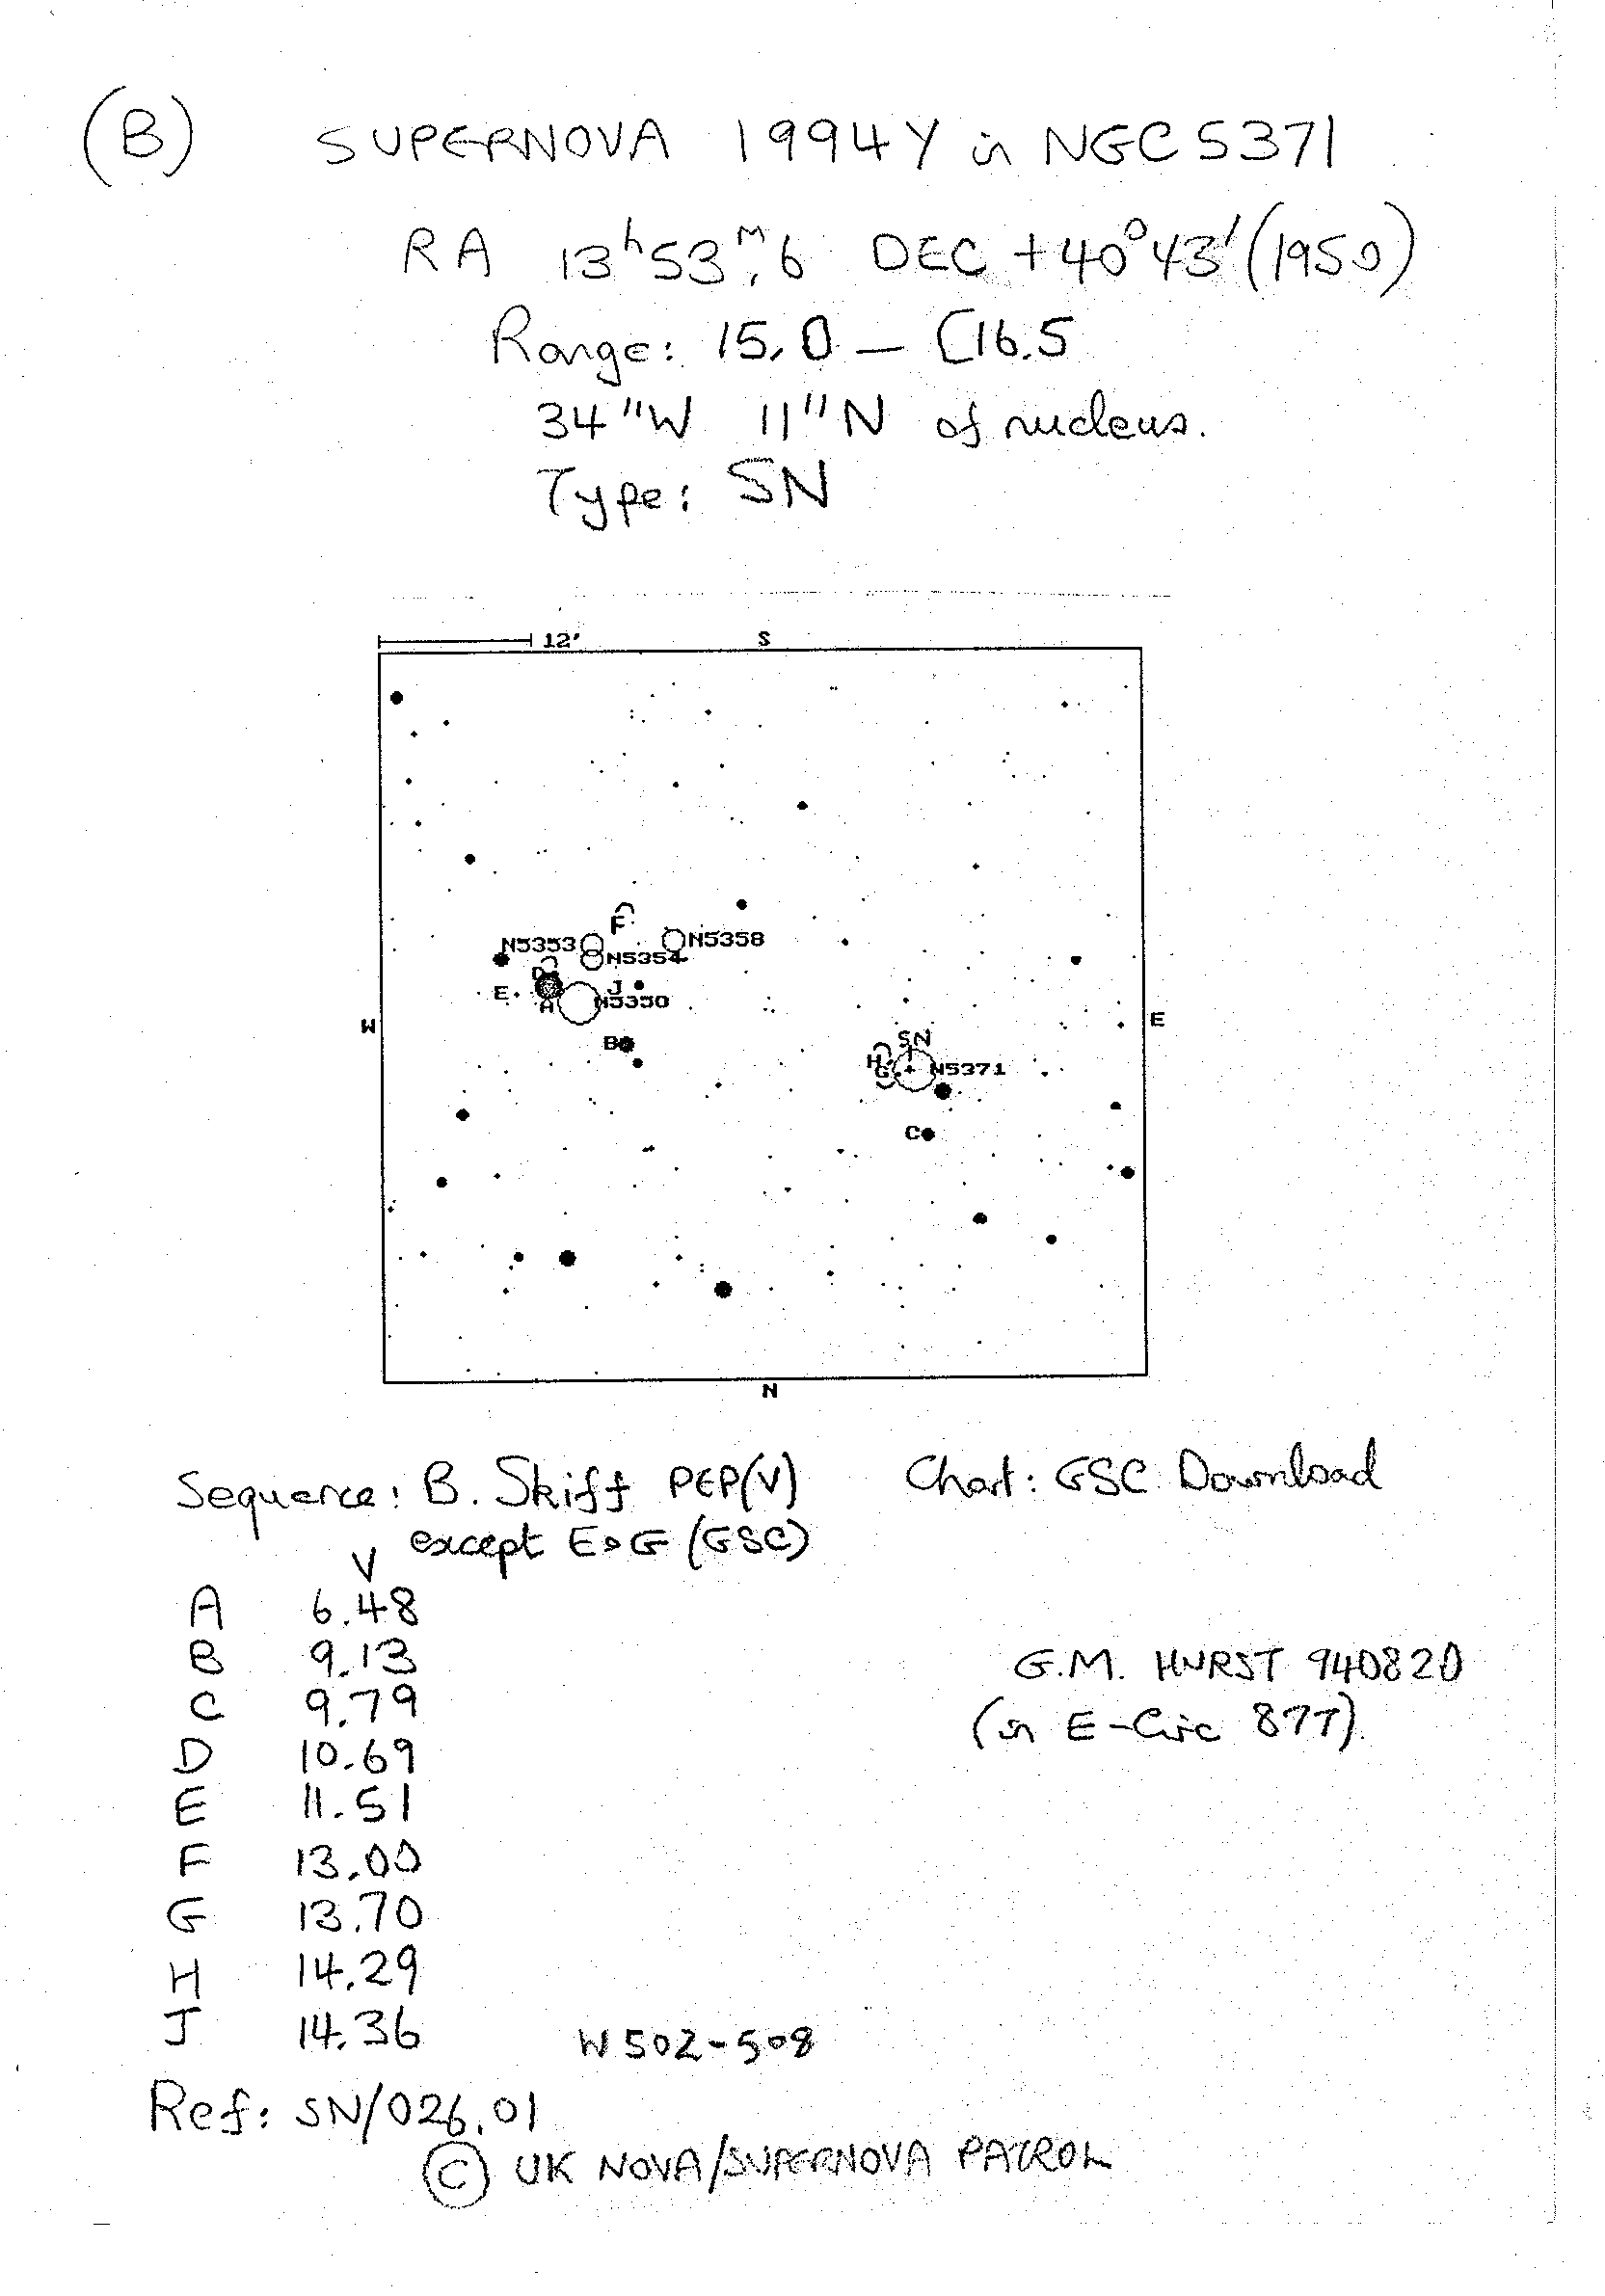 (B) SUPERNOVA 1994Y in NGC 5371
RA 13h53m.6 DEC +40°43'(1950)
Range: 15.0 – [16.5
34"W 11"N of nucleus.
Type: SN
12' S
F
N5353 N5358
N5354
D
E J
A N5350
W E
SN
B
H
G N5371
C
N
Sequence: B. Skiff PEP(V) Chart: GSC Download
except E>G (GSC)
V
A 6.48
B 9.13
C 9.79
D 10.69
E 11.51
F 13.00
G 13.70
H 14.29
J 14.36
G.M. HURST 940820
(in E-Circ 877)
W502-508
Ref: SN/026.01
© UK NOVA/SUPERNOVA PATROL